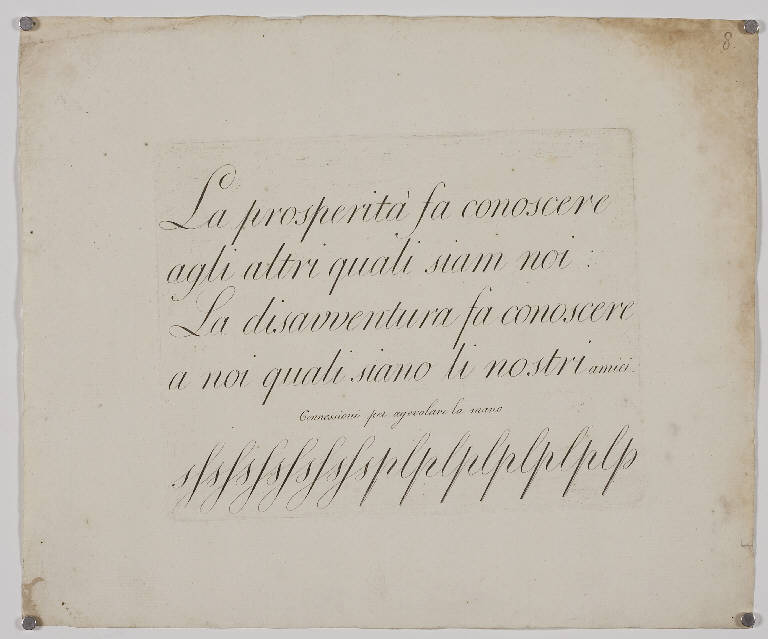 8
La prosperità fa conoscere
agli altri quali siam noi :
La disavventura fa conoscere
a noi quali siano li nostri amici.
Connessioni per agevolare la mano